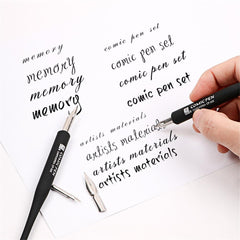 memory
memory
memory
memory
comic pen set
comic pen set
comic pen set
comic pen set
artists materials
artists materials
artists materials
artists materials
COMIC PEN
COMIC PEN